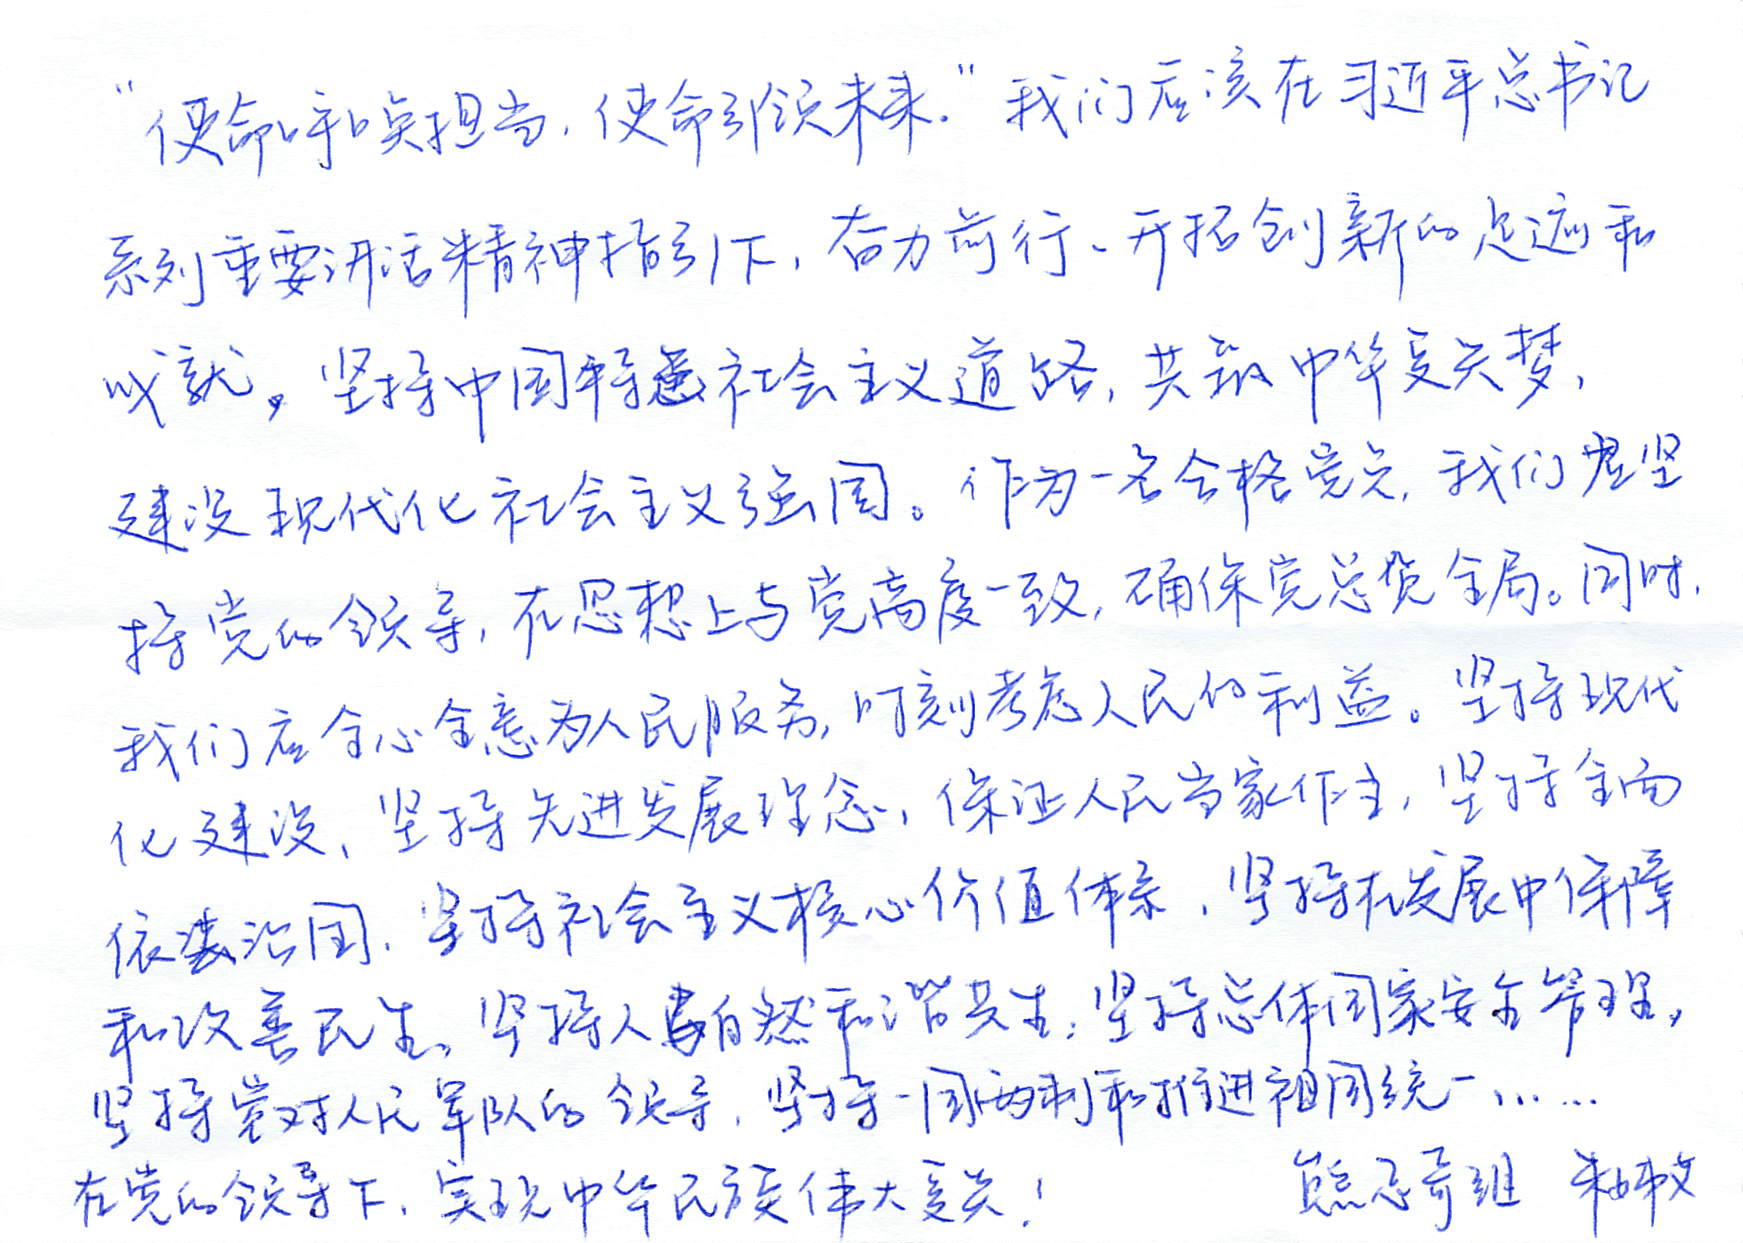 “使命呼唤担当，使命引领未来。”我们应该在习近平总书记
系列重要讲话精神指引下，奋力前行、开拓创新的足迹和
成就。坚持中国特色社会主义道路，共筑中华复兴梦，
建设现代化社会主义强国。作为一名合格党员，我们应坚
持党的领导，在思想上与党高度一致，确保党总览全局。同时，
我们应全心全意为人民服务，时刻考虑人民的利益。坚持现代
化建设、坚持先进发展理念，保证人民当家作主，坚持全面
依法治国，坚持社会主义核心价值体系，坚持在发展中保障
和改善民生、坚持人与自然和谐共生，坚持总体国家安全管理，
坚持党对人民军队的领导，坚持一国两制和推进祖国统一……
在党的领导下，实现中华民族伟大复兴！
熊忍奇组 朱